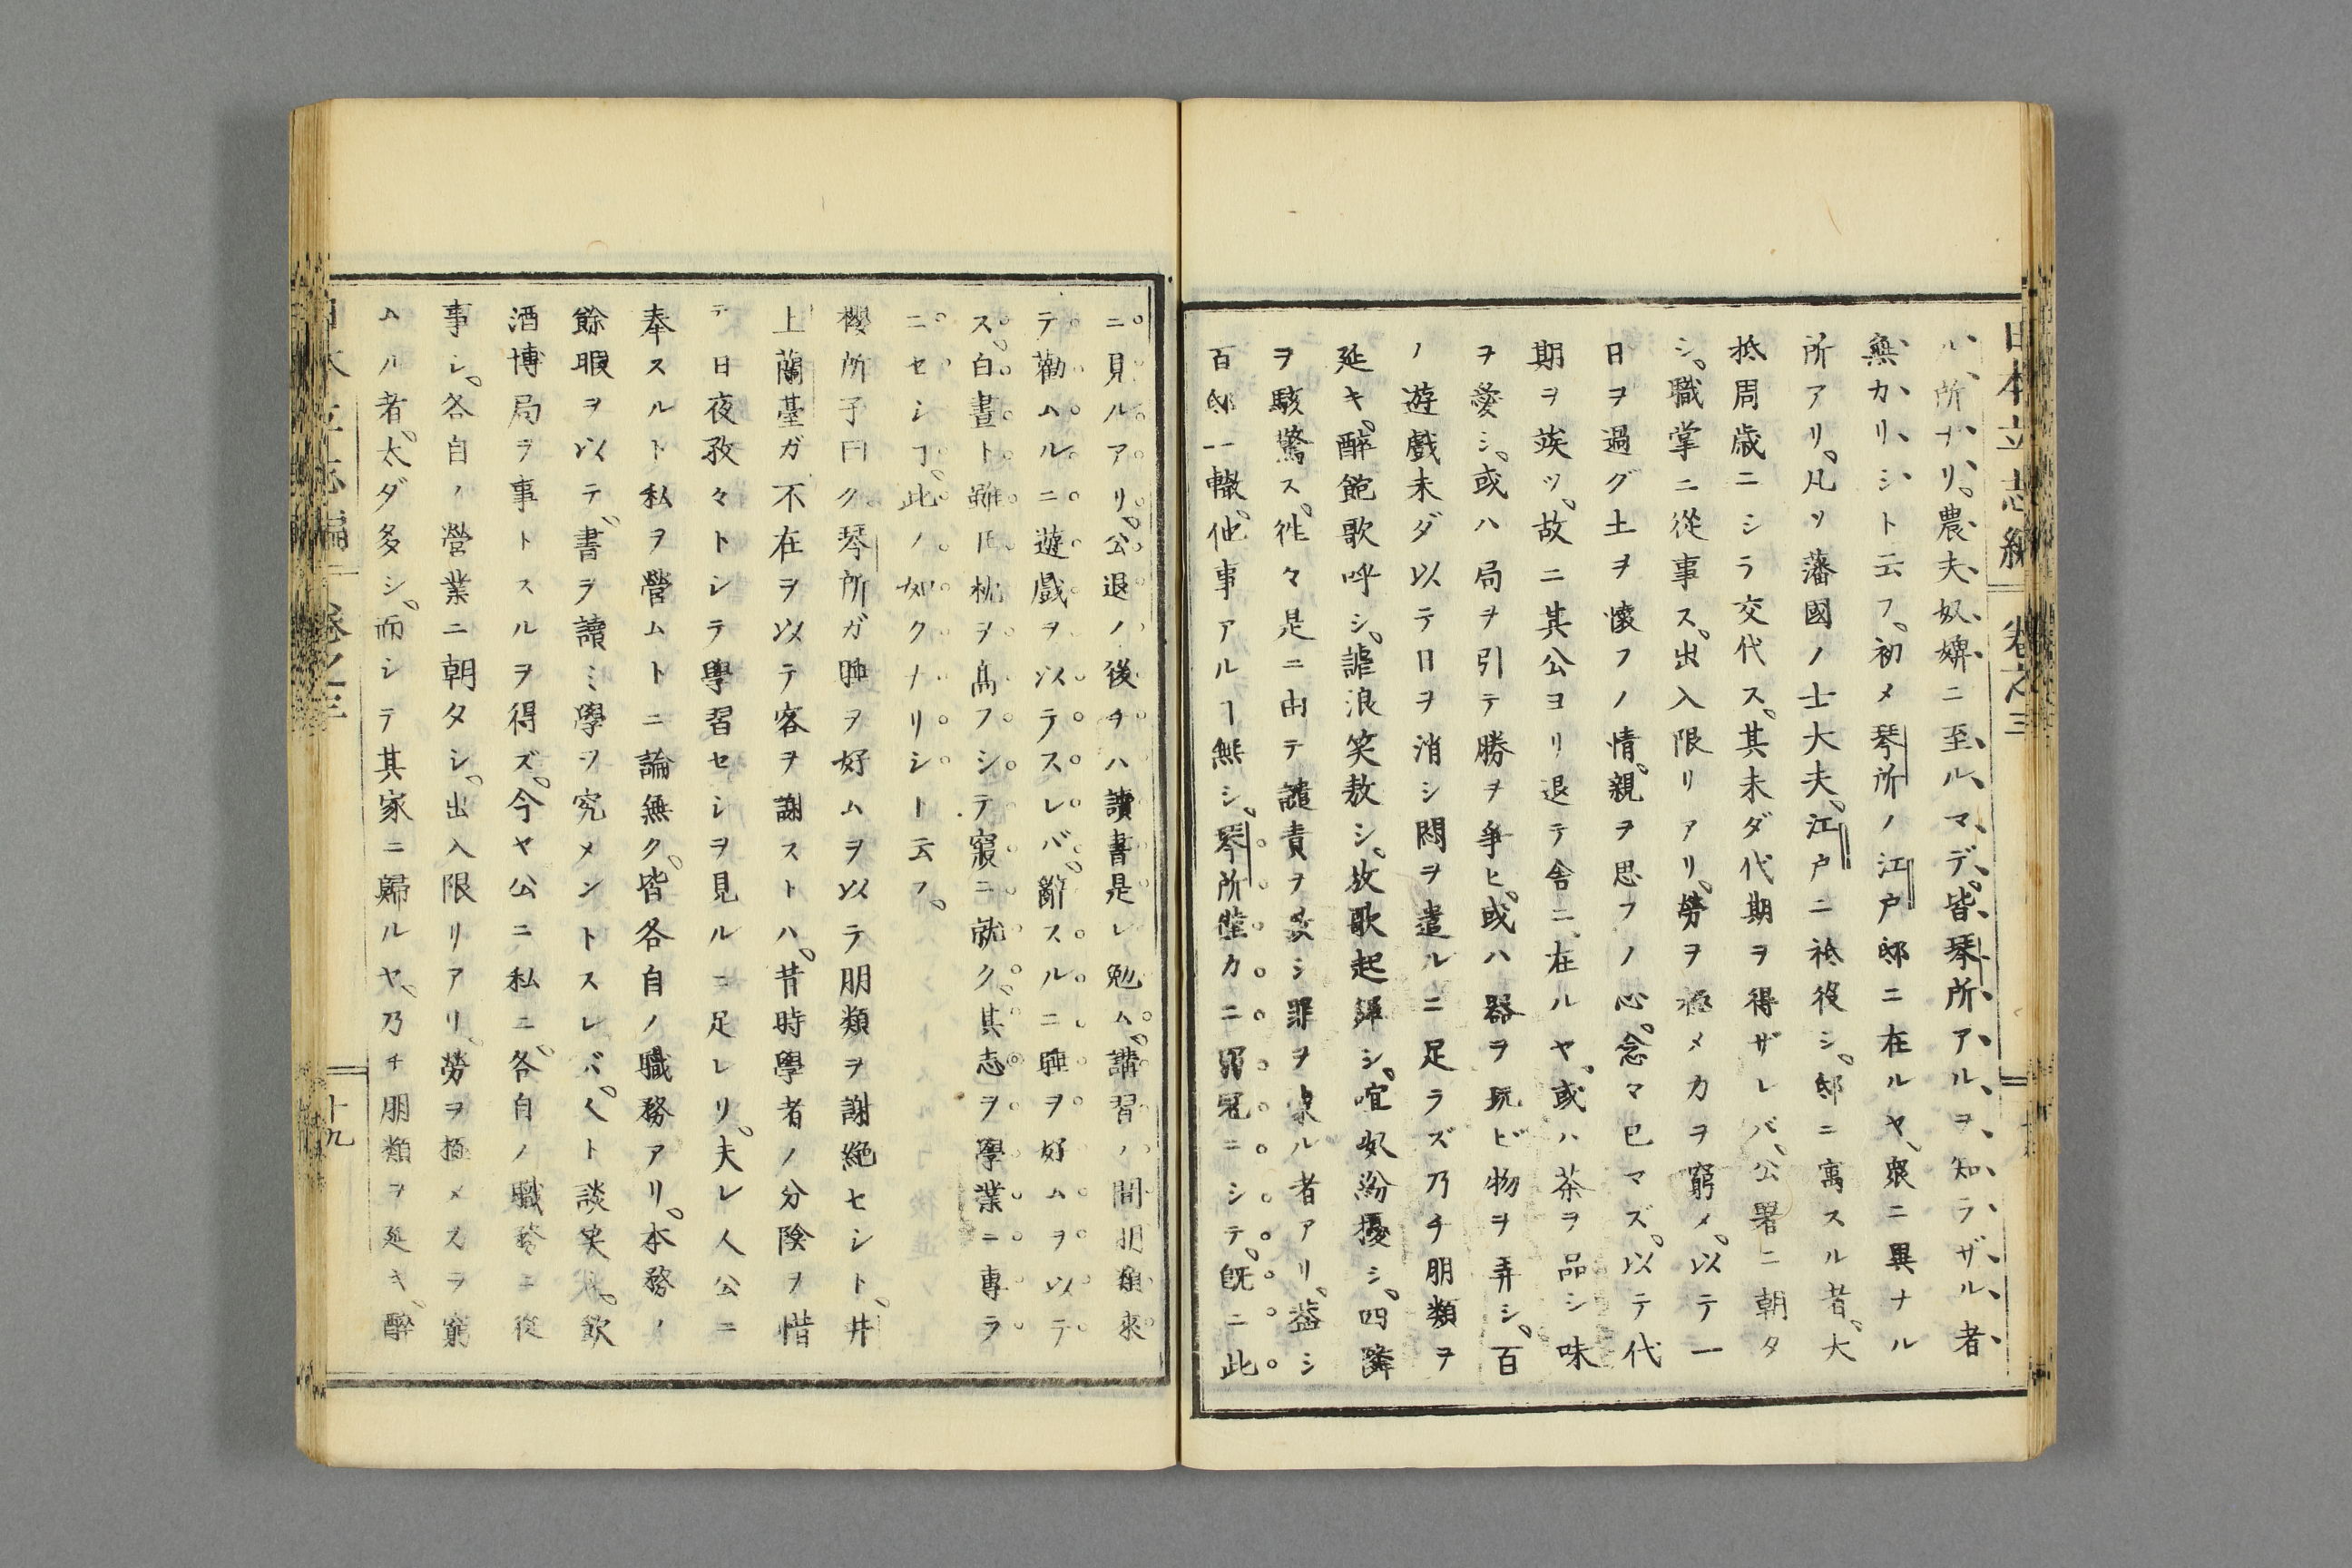 日本立志編 卷之三
ル所ナリ。農夫奴婢ニ至ルマデ。皆琴所アルヲ知ラザル者
無カリシト云フ。初メ琴所ノ江戸邸ニ在ルヤ、衆ニ異ナル
所アリ。凡ソ藩國ノ士大夫。江戸ニ祗役シ。邸ニ寓スル者。大
抵周歳ニシラ交代ス。其未ダ代期ヲ得ザレバ、公署ニ朝タ
シ。職掌ニ從事ス。出入限リアリ。勞ヲ極メカヲ窮メ。以テ一
日ヲ過グ土ヲ懷フノ情。親ヲ思フノ心。念マ已マズ。以テ代
期ヲ竢ツ。故ニ其公ヨリ退テ舎ニ在ルヤ。或ハ茶ヲ品シ味
ヲ愛シ。或ハ局ヲ引テ勝ヲ爭ヒ。或ハ器ヲ玩ビ物ヲ弄シ。百
ノ遊戲未ダ以テ日ヲ消シ悶ヲ遣ルニ足ラズ乃チ朋類ヲ
延キ。醉飽歌呼シ。謔浪笑敖シ。放歌起舞シ。喧呶紛擾シ。四隣
ヲ駭驚ス。徃々是ニ由テ譴責ヲ シ罪ヲ ル者アリ。蓋シ
百邸一轍。他事アルヿ無シ。琴所 カニ弱冠ニシテ。既ニ此
ニ見ルアリ。公退ノ後チハ讀書是レ勉ム。講習ノ間朋類來
テ勸ムルニ遊戲ヲ以テスレバ。辭スルニ睡ヲ好ムヲ以テ
ス。白晝ト雖𪜈枕ヲ高フシテ寢ニ就ク。其志ヲ學業ニ專ラ
ニセシヿ。此ノ如クナリシト云フ。
櫻所子曰ク。琴所ガ睡ヲ好ムヲ以テ朋類ヲ謝絶セシト。井
上蘭臺ガ不在ヲ以テ客ヲ謝ストハ。昔時學者ノ分陰ヲ惜
テ日夜孜々トシテ學習セシヲ見ルニ足レリ。夫レ人公ニ
奉スルト私ヲ營ムトニ論無ク。皆各自ノ職務アリ。本務ノ
餘暇ヲ以テ。書ヲ讀ミ學ヲ究メントスレバ。人ト談笑シ。飲
酒博局ヲ事トスルヲ得ズ。今ヤ公ニ私ニ。各自ノ職務ニ從
事シ。各自ノ營業ニ朝タシ。出入限リアリ。勞ヲ極メ ヲ窮
ムル者。太ダ多シ。而シテ其家ニ歸ルヤ。乃チ朋類ヲ延キ。醉
日本立志編 卷之三 十九